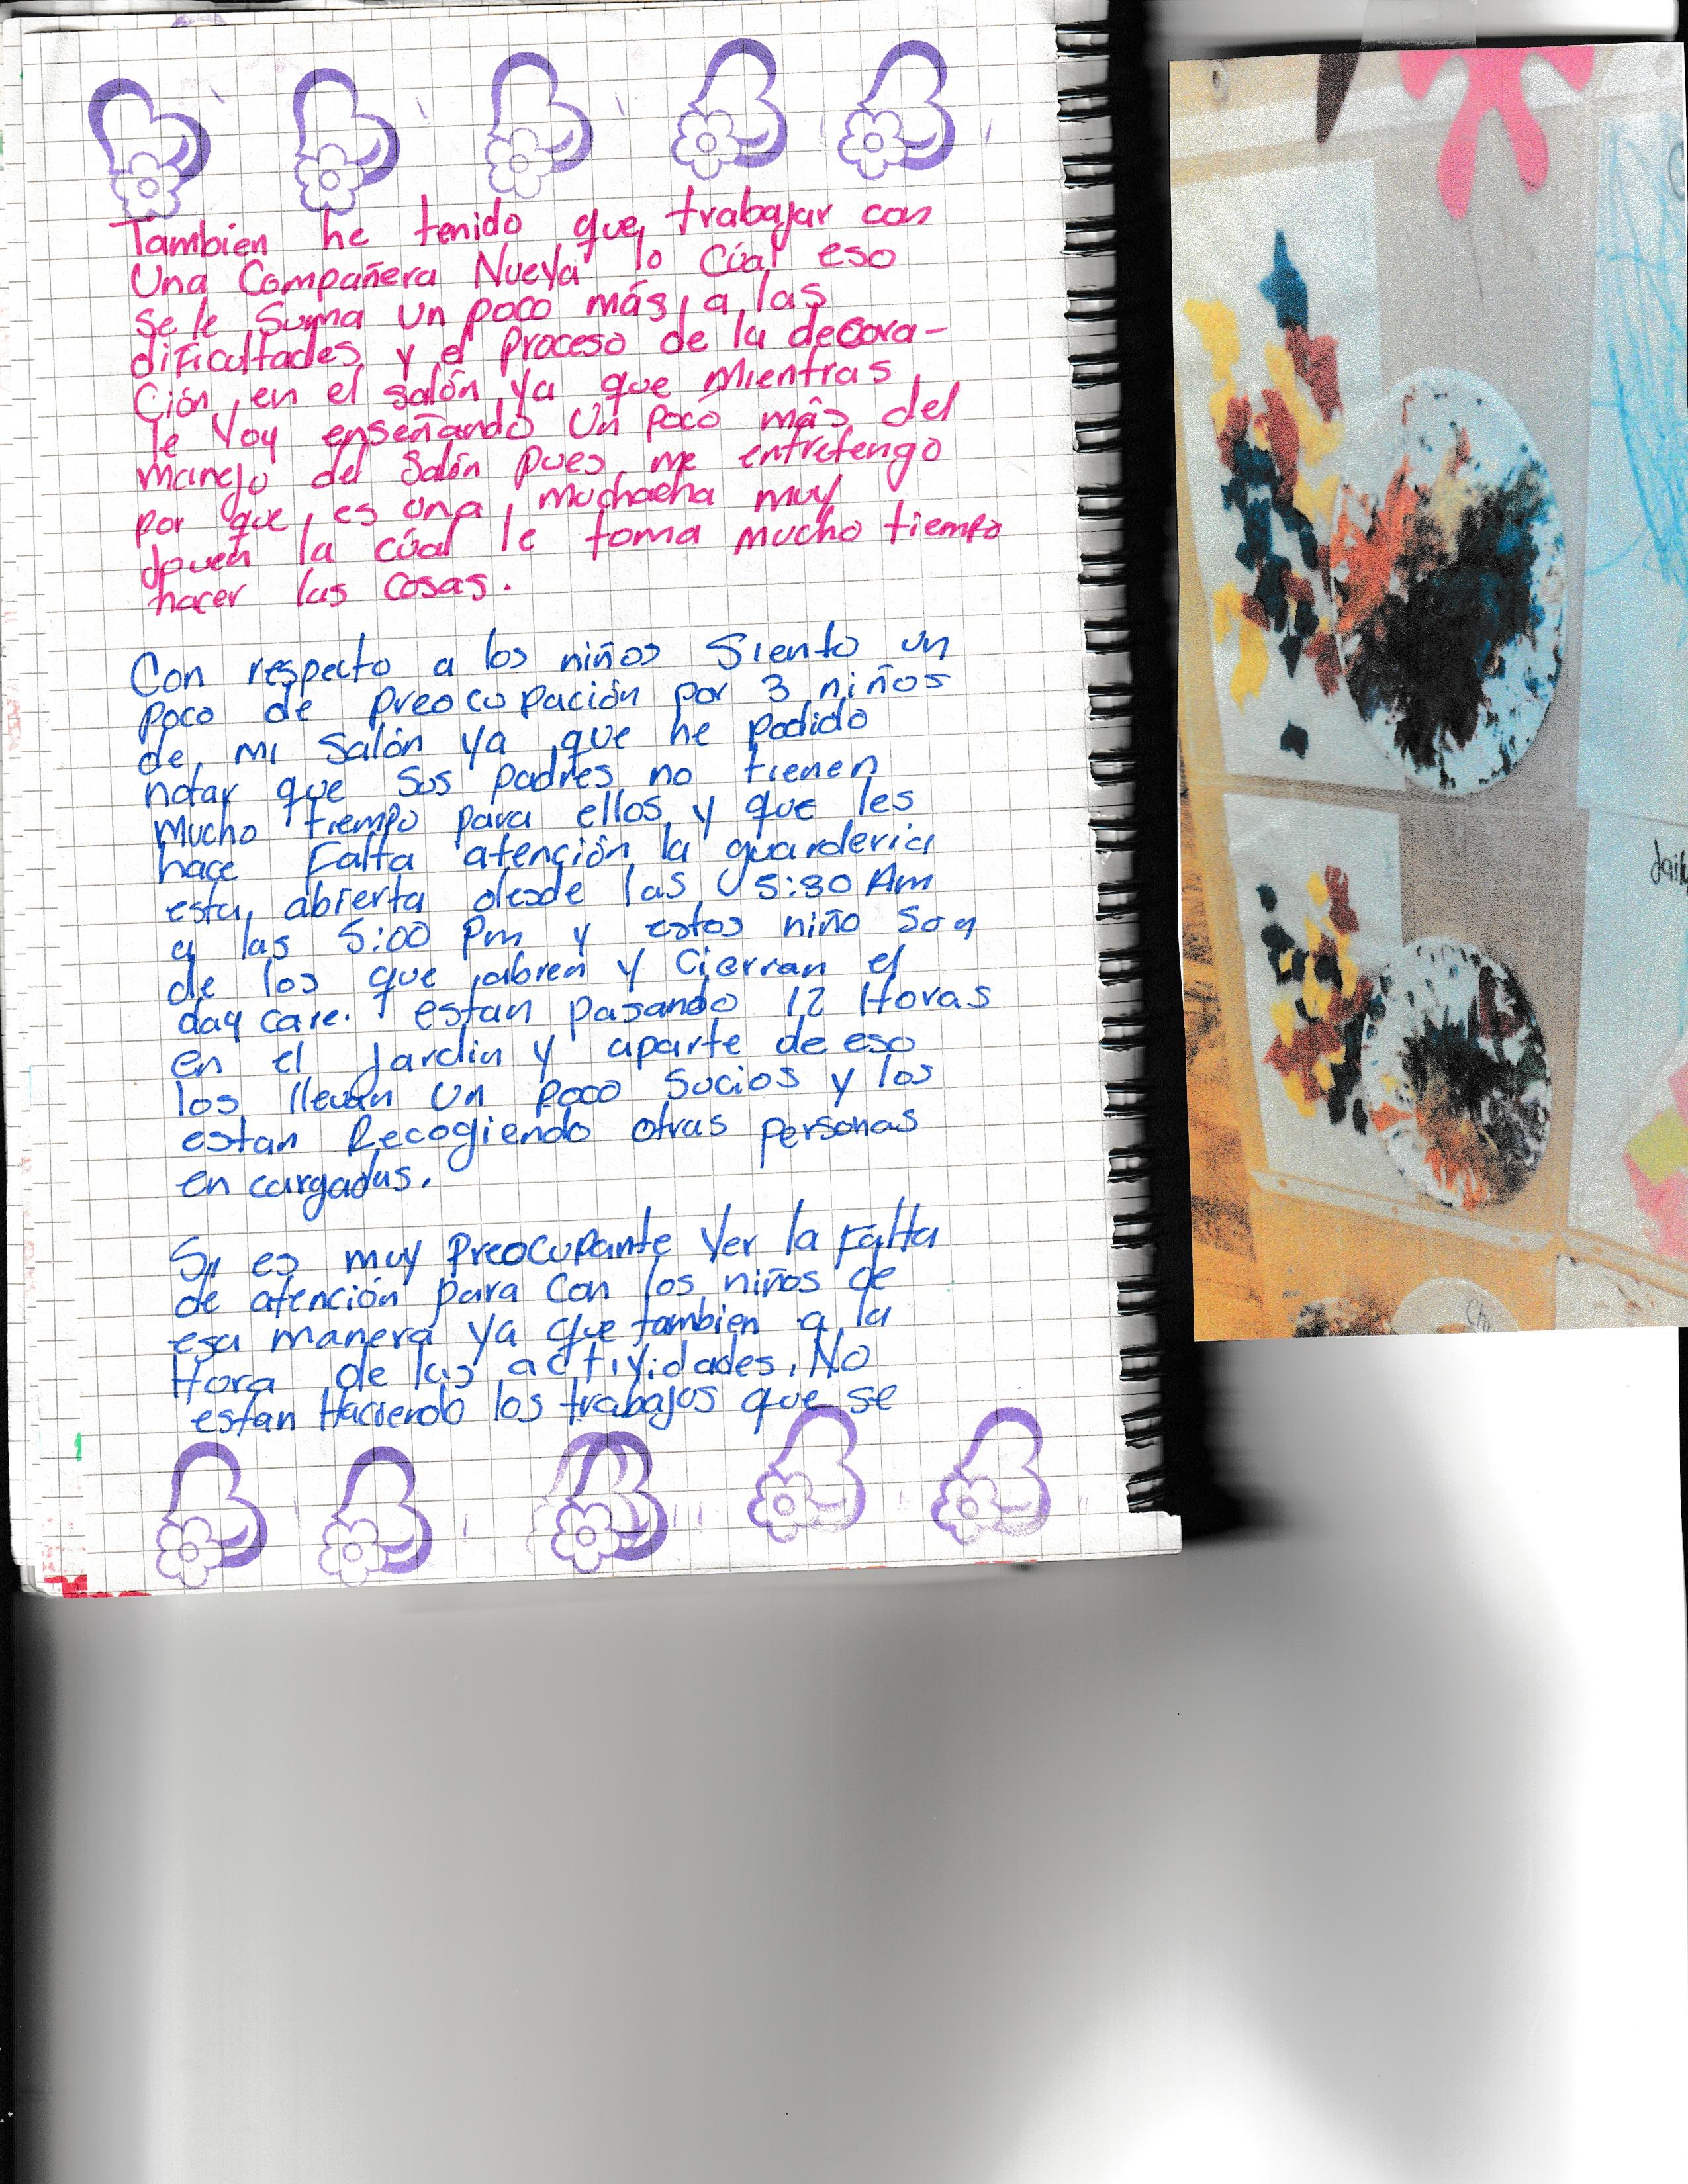 Tambien he tenido que trabajar con
Una Compañera Nueva lo Cúal eso
se le suma un poco más a las
dificultades y el proceso de la decora-
Ción en el salón ya que Mientras
le Voy enseñando Un poco más del
manejo del salón pues me entretengo
por que es una muchacha muy
joven la cúal le toma mucho tiempo
hacer las cosas.
Con respecto a los niños Siento un
poco de preocupación por 3 niños
de mi salón ya que he podido
notar que sus padres no tienen
mucho tiempo para ellos y que les
hace Falta atención la guarderia
esta abierta desde las 5:30 Am
a las 5:00 Pm y estos niño son
de los que abren y Cierran el
day care. estan pasando 12 Horas
en el Jardin y aparte de eso
los llevan Un poco Sucios y los
estan Recogiendo otras personas
en cargadas.
es muy Preocupante Ver la Falta
de atención para Con los niños de
esa manera ya que tambien a la
Hora de las actividades. No
estan Haciendo los trabajos que se